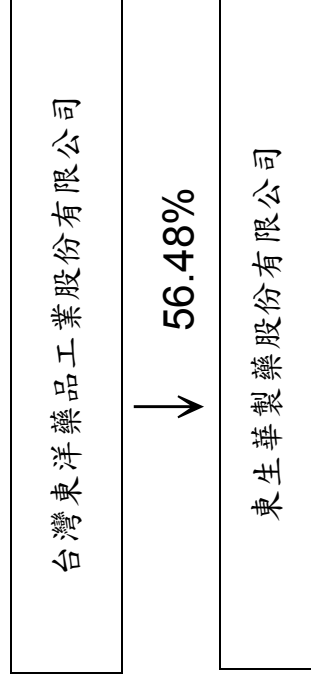 台灣東洋藥品工業股份有限公司
56.48%
東生華製藥股份有限公司